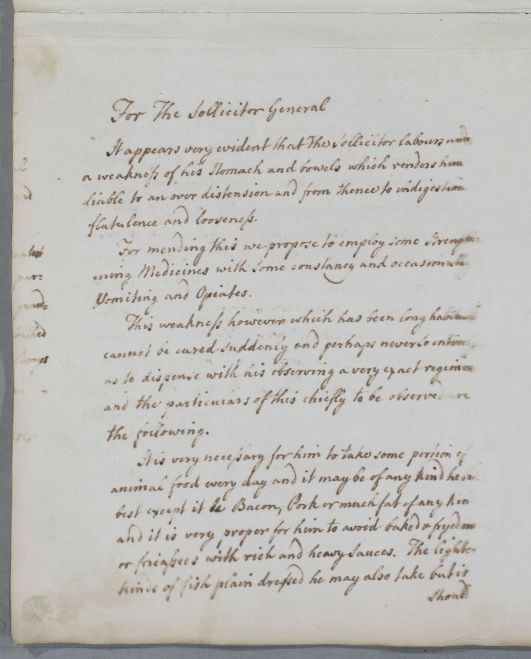 For The Sollicitor General
It appears very evident that The Sollicitor labours under
a weakness of his Stomach and bowels which renders him
liable to an over distension and from thence to indigestion
flatulence and looseness.
For mending this we propose to employ some Strength
ening Medicines with some constancy and occasionally
Vomiting and Opiates.
This weakness however which has been long habitual
cannot be cured suddenly and perhaps never so entirely
as to dispense with his observing a very exact regimen
and the particulars of this chiefly to be observed are
the following.
It is very necessary for him to take some portion of
animal food every day and it may be of any kind he likes
best except it be Bacon, Pork or much fat of any kin
and it is very proper for him to avoid baked & fryed
or fricasees with rich and heavy Sauces. The light
kinds of fish plain dressed he may also take but it
Should